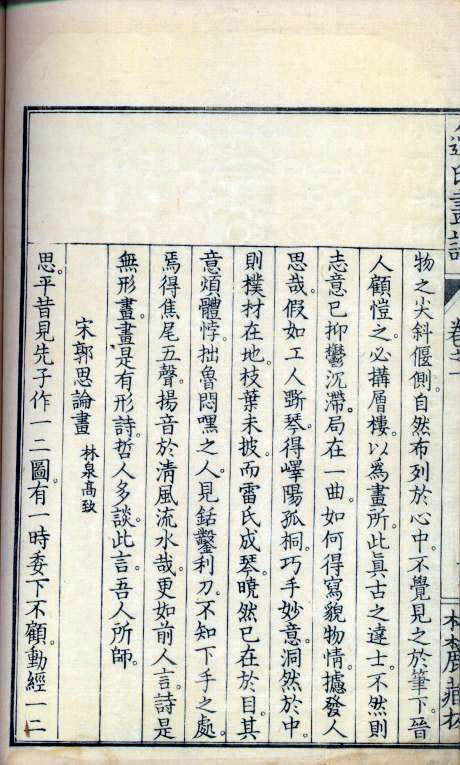 物之尖斜偃側自然布列於心中不覺見之於筆下晉
人顧愷之必搆層樓以為畫所此眞古之達士不然則
志意已抑鬱沉滯局在一曲如何得寫貌物情攄發人
思哉假如工人斲琴得嶧陽孤桐巧手妙意洞然於中
則樸材在地枝葉未披而雷氏成琴曉然已在於目其
意煩體悖拙魯悶嘿之人見銛鑿利刀不知下手之處
焉得焦尾五聲揚音於清風流水哉更如前人言詩是
無形畫畫是有形詩哲人多談此言吾人所師
宋郭思論畫 林泉高致
思平昔見先子作一二圖有一時委下不顧動經一二